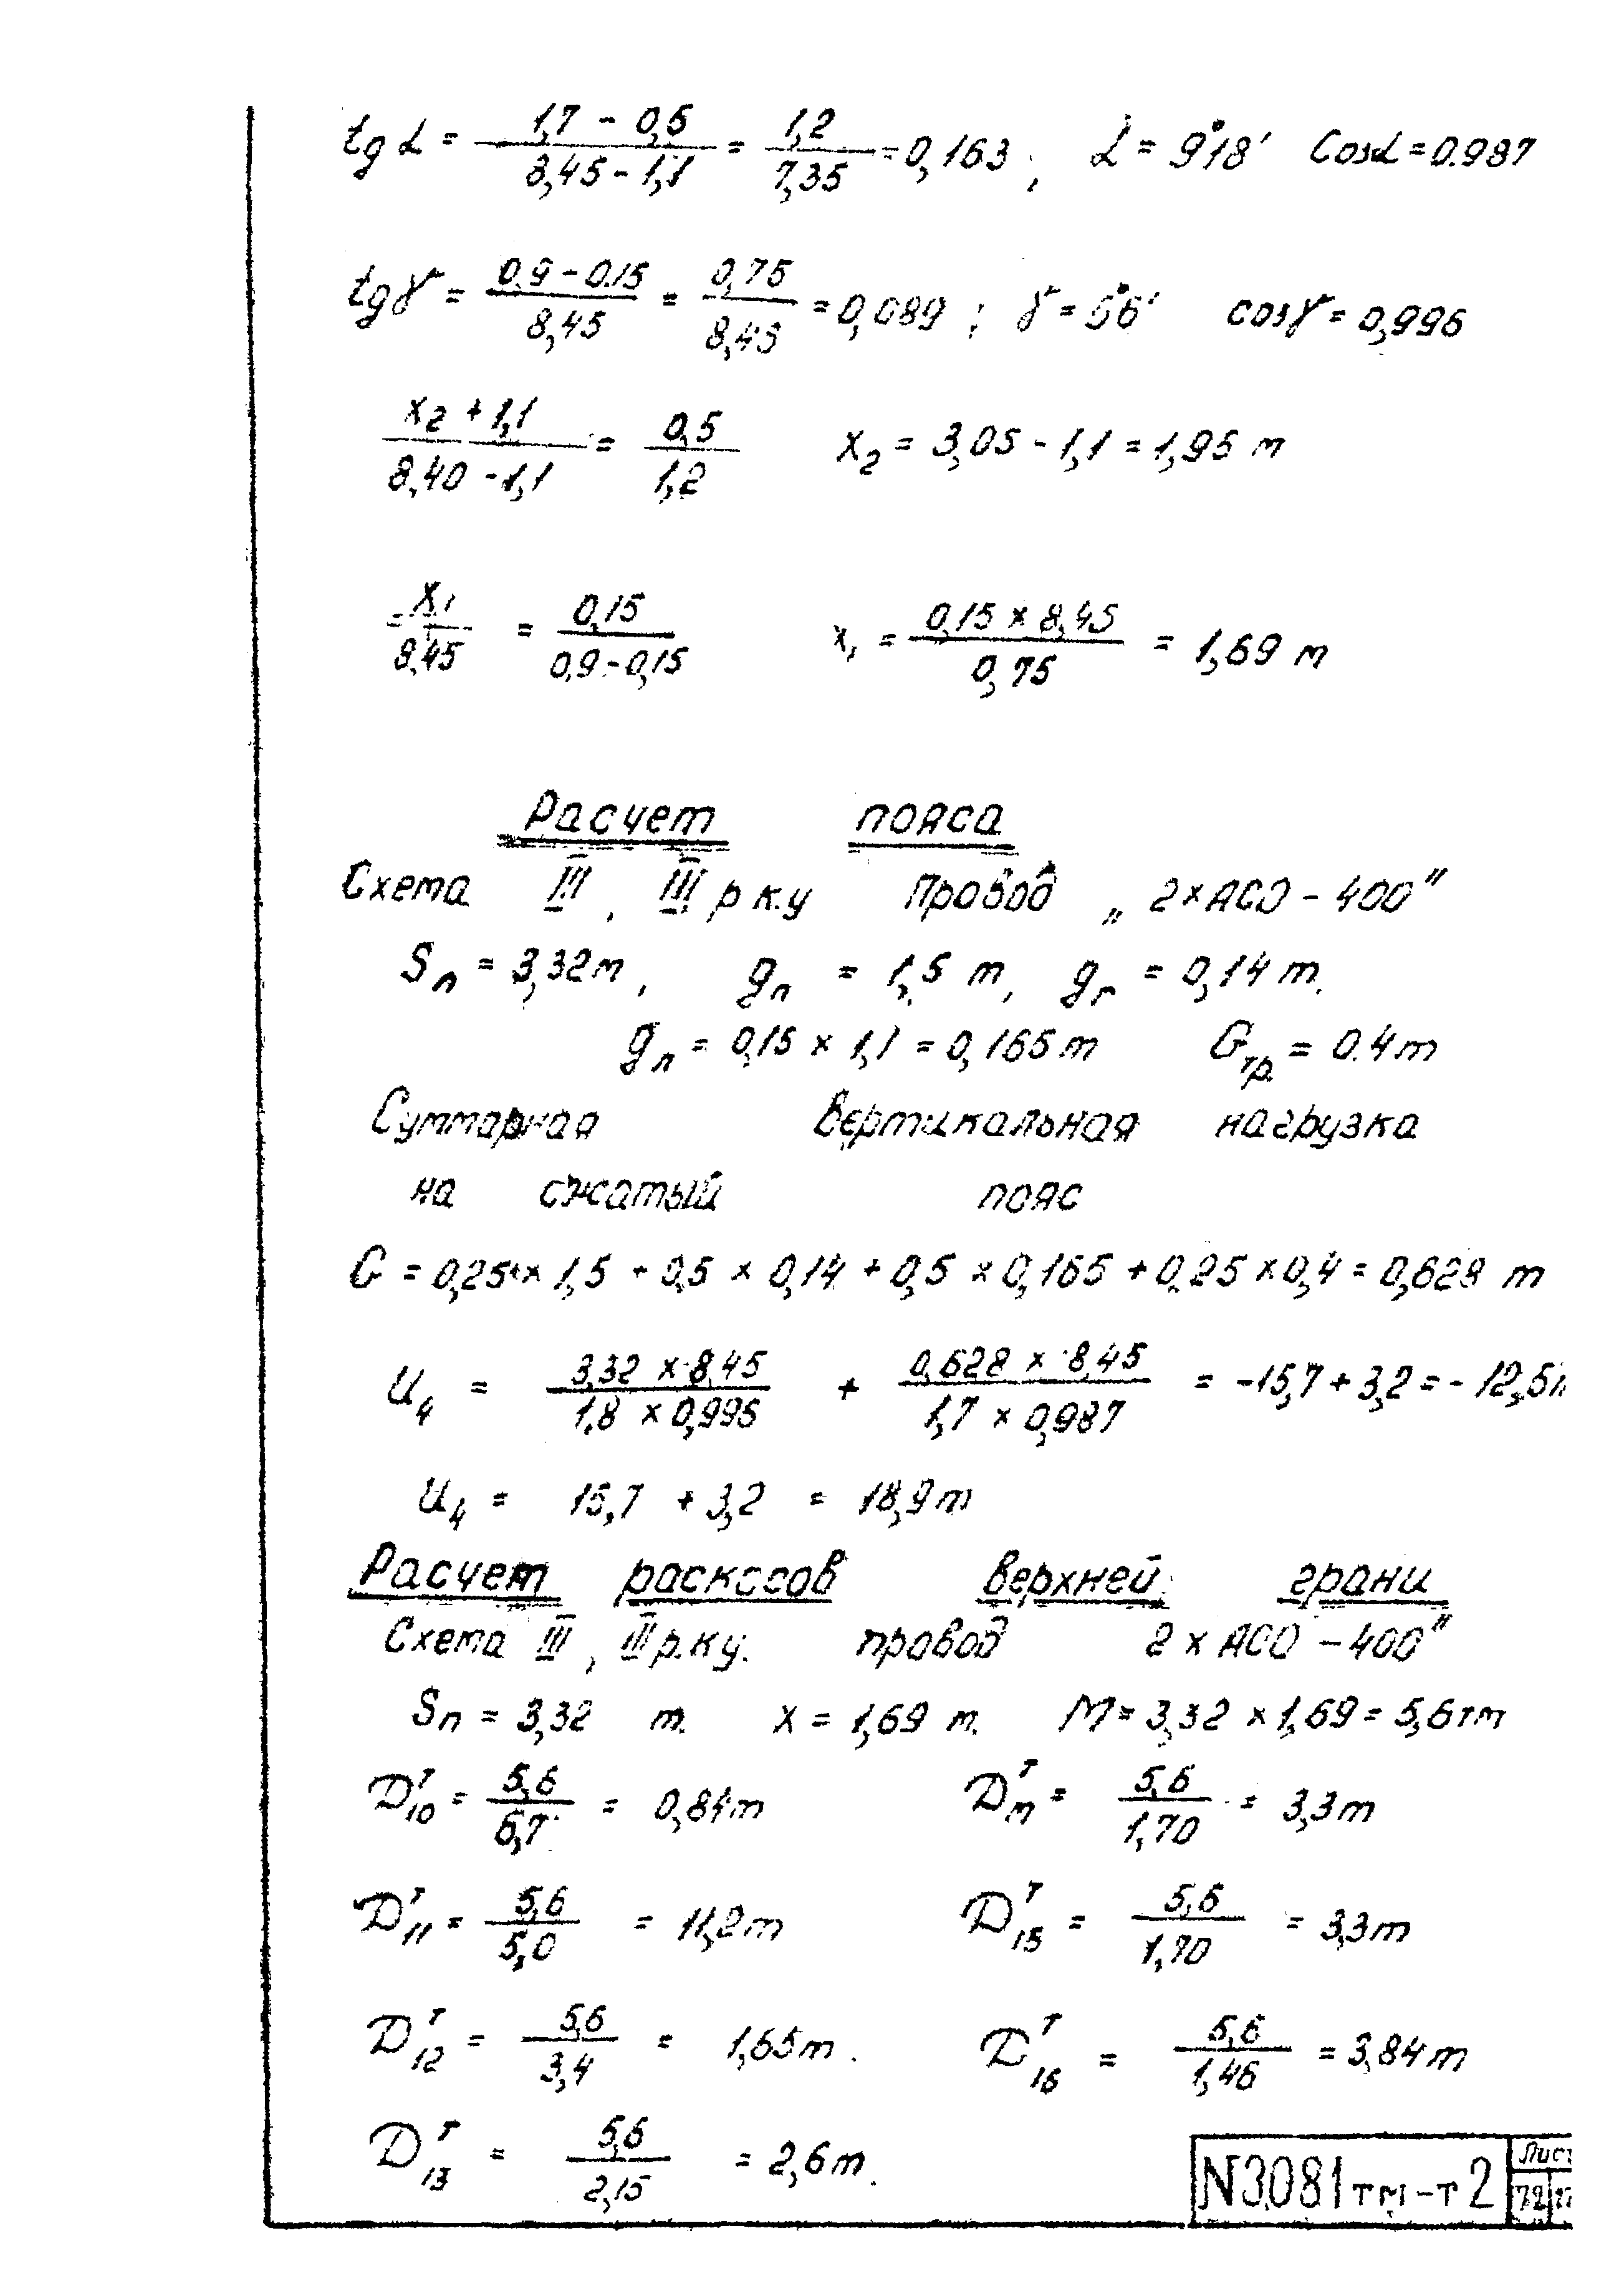 tg α = (1,7 - 0,5)/(8,45 - 1,1) = 1,2/7,35 = 0,163; α = 9°18′ Cosα = 0.987
tg γ = (0,9 - 0.15)/8,45 = 0,75/8,45 = 0,089; γ = 5°6′ cosγ = 0,996
(x₂ + 1,1)/(8,40 - 1,1) = 0,5/1,2 x₂ = 3,05 - 1,1 = 1,95 т
x₁/8,45 = 0,15/(0,9 - 0,15) x₁ = (0,15 × 8,45)/0,75 = 1,69 т
Расчет пояса
Схема III, III р к.у Провод „2×АСО - 400"
Sп = 3,32т, gп = 1,5 т, gг = 0,14 т.
gл = 0,15 × 1,1 = 0,165т Gтр. = 0.4т
Суммарная вертикальная нагрузка
на сжатый пояс
G = 0,25 × 1,5 + 0,5 × 0,14 + 0,5 × 0,165 + 0,25 × 0,4 = 0,628 т
U₄ = (3,32 × 8,45)/(1,8 × 0,996) + (0,628 × 8,45)/(1,7 × 0,987) = -15,7 + 3,2 = - 12,5т
U₄ = 15,7 + 3,2 = 18,9т
Расчет раскосов верхней грани
Схема III, III р.к.у. провод 2 × АСО - 400"
Sп = 3,32 т. x = 1,69 т. М = 3,32 × 1,69 = 5,6тм
D₁₀ᵀ = 5,6/6,7 = 0,84т Dᵀ = 5,6/1,70 = 3,3т
D₁₁ᵀ = 5,6/5,0 = 11,2т D₁₅ᵀ = 5,6/1,70 = 3,3т
D₁₂ᵀ = 5,6/3,4 = 1,65т. D₁₆ᵀ = 5,6/1,46 = 3,84т
D₁₃ᵀ = 5,6/2,15 = 2,6т.
N3081тм-т2 Лист
72